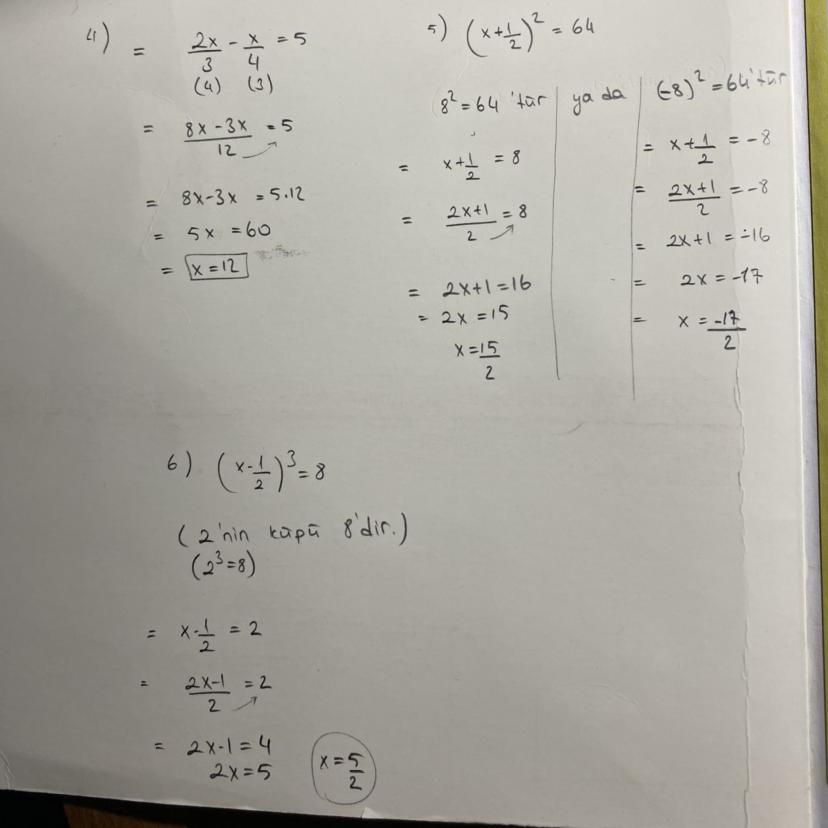 4) = 2x/3 - x/4 = 5
(4) (3)
= 8x-3x/12 = 5
= 8x-3x = 5.12
= 5x = 60
= x = 12
5) (x+1/2)² = 64
8² = 64 'tür
= x+1/2 = 8
= 2x+1/2 = 8
= 2x+1 = 16
= 2x = 15
x = 15/2
ya da
(-8)² = 64 'tür
= x+1/2 = -8
= 2x+1/2 = -8
= 2x+1 = -16
= 2x = -17
= x = -17/2
6) (x-1/2)³ = 8
(2'nin küpü 8'dir.)
(2³=8)
= x-1/2 = 2
= 2x-1/2 = 2
= 2x-1 = 4
2x = 5
x = 5/2